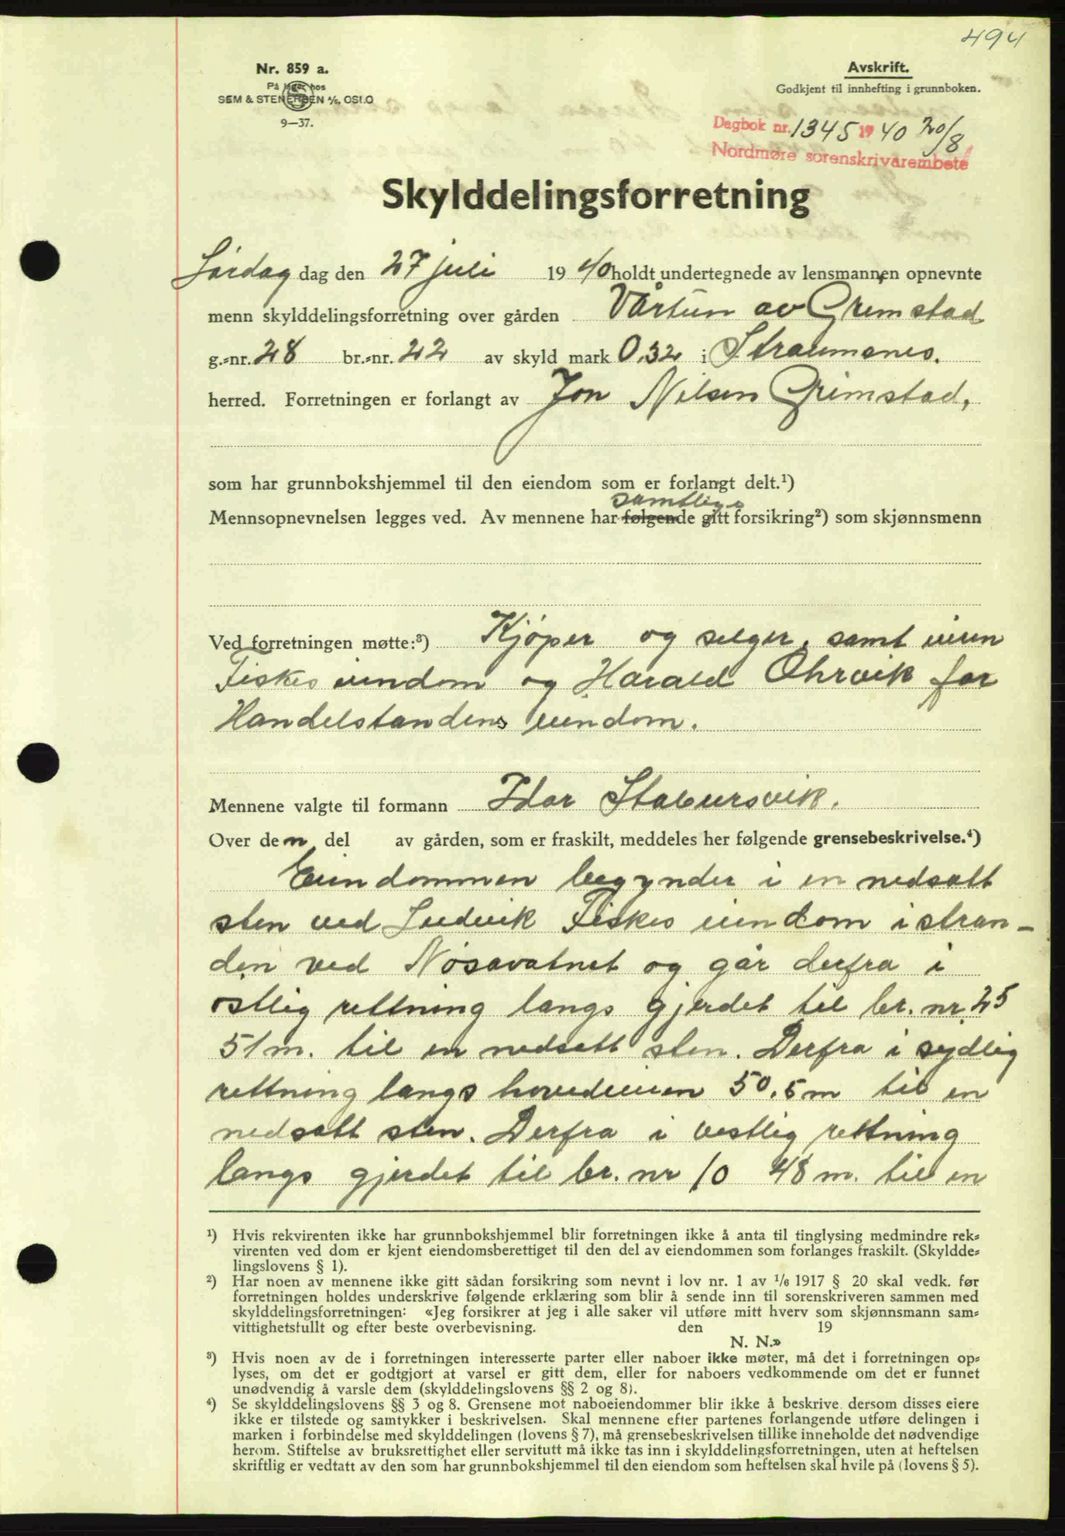 494
Nr. 859 a.
På lager hos
SEM & STENERSEN A/S, OSLO
9—37.
Avskrift.
Godkjent til innhefting i grunnboken.
Dagbok nr. 1345 1940 20/8
Nordmøre sorenskriverembete
Skylddelingsforretning
Lørdag dag den 27 juli 1940 holdt undertegnede av lensmannen opnevnte
menn skylddelingsforretning over gården Vårtun av Grimstad
g.-nr. 28 br.-nr. 22 av skyld mark 0,32 i Straumsnes.
herred. Forretningen er forlangt av Jon Nilsen Grimstad,
som har grunnbokshjemmel til den eiendom som er forlangt delt.¹)
samtlige
Mennsopnevnelsen legges ved. Av mennene har følgende gitt forsikring²) som skjønnsmenn
Ved forretningen møtte:³) Kjøper og selger, samt
Fiskes eiendom og Harald Ohrvik for
Handelstandens eiendom.
Mennene valgte til formann Idar Stabursvik.
Over den del av gården, som er fraskilt, meddeles her følgende grensebeskrivelse.⁴)
Eiendommen begynder i en nedsatt
sten ved Ludvik Fiskes eiendom i stran-
den ved Nøsavatnet og går derfra i
østlig rettning langs gjerdet til br. nr 25
51 m. til en nedsatt sten. Derfra i sydlig
rettning langs hovedveien 50,5 m til en
nedsatt sten. Derfra i vestlig rettning
langs gjerdet til br. nr 10 48 m. til en
¹) Hvis rekvirenten ikke har grunnbokshjemmel blir forretningen ikke å anta til tinglysing medmindre rek-
virenten ved dom er kjent eiendomsberettiget til den del av eiendommen som forlanges fraskilt. (Skyldde-
lingslovens § 1).
²) Har noen av mennene ikke gitt sådan forsikring som nevnt i lov nr. 1 av 1/6 1917 § 20 skal vedk. før
forretningen holdes underskrive følgende erklæring som blir å sende inn til sorenskriveren sammen med
skylddelingsforretningen: «Jeg forsikrer at jeg i alle saker vil utføre mitt hverv som skjønnsmann sam-
vittighetsfullt og efter beste overbevisning. den 19
N. N.»
³) Hvis noen av de i forretningen interesserte parter eller naboer ikke møter, må det i forretningen op-
lyses, om det er godtgjort at varsel er gitt dem, eller for naboers vedkommende om det er funnet
unødvendig å varsle dem (skylddelingslovens §§ 2 og 8).
⁴) Se skylddelingslovens §§ 3 og 8. Grensene mot naboeiendommer blir ikke å beskrive, dersom disses eiere
ikke er tilstede og samtykker i beskrivelsen. Skal mennene efter partenes forlangende utføre delingen i
marken i forbindelse med skylddelingen (lovens § 7), må grensebeskrivelsen tillike inneholde det nødvendige
herom. Stiftelse av bruksrettighet eller servitutt må ikke tas inn i skylddelingsforretningen, uten at heftelsen
skriftlig er vedtatt av den som har grunnbokshjemmel til den eiendom som heftelsen skal hvile på (lovens § 5).